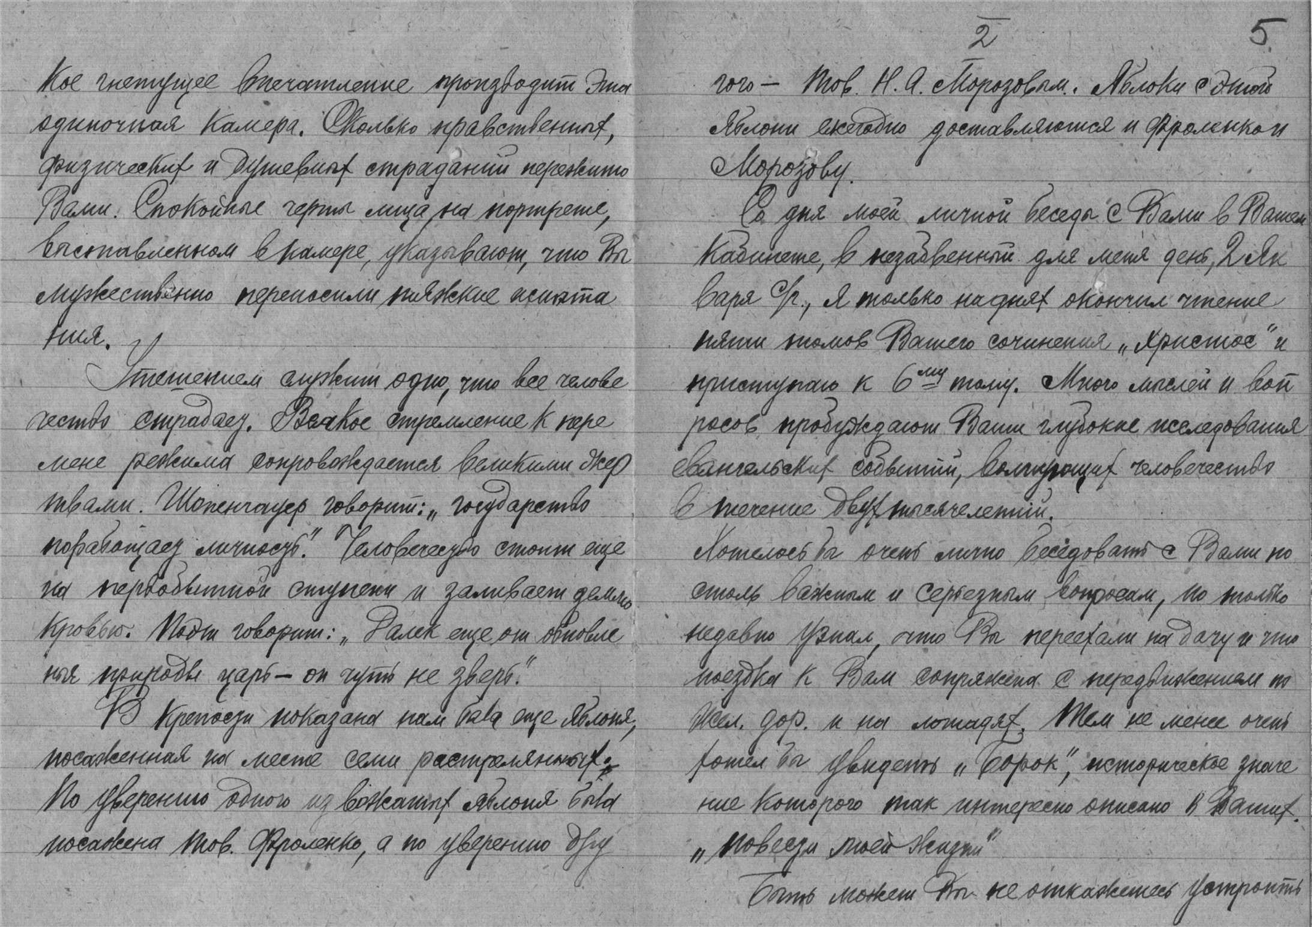 кое гнетущее впечатление производит эта
одиночная камера. Сколько нравственных,
физических и душевных страданий пережито
Вами. Спокойные черты лица, на портрете,
выставленном в камере, указывают, что Вы
мужественно переносили тяжкие испыта
ния.
Утешением служит одно, что все челове
чество страдает. Всякое стремление к пере
мене режима сопровождается великими жер
твами. Шопенгауер говорит: „государство
порабощает личность". Человечество стоит еще
на первобытной ступени и заливает землю
кровью. Поэт говорит: „Далек еще от обновле
нья природы царь — он чуть не зверь."
В крепости показана нам была еще яблоня,
посаженная на месте семи расстрелянных.
По уверению одного из вожатых яблоня была
посажена тов. Фроленко, а по уверению дру
2
5
гого — тов. Н. А. Морозовым. Яблоки с этой
яблони ежегодно доставляются и Фроленко и
Морозову.
Со дня моей личной беседы с Вами в Вашем
кабинете, в незабвенный для меня день, 2 Ян
варя с/г., я только на днях окончил чтение
пяти томов Вашего сочинения „Христос" и
приступаю к 6му тому. Много мыслей и воп
росов пробуждают Ваши глубокие исследования
евангельских событий, волнующих человечество
в течение двух тысячелетий.
Хотелось бы очень лично беседовать с Вами по
столь важным и серьезным вопросам, но только
недавно узнал, что Вы переехали на дачу и что
поездка к Вам сопряжена с передвижением по
жел. дор. и на лошадях. Тем не менее очень
хотел бы увидеть „Борок", историческое значе
ние которого так интересно описано в Ваших.
„повести моей жизни"
Быть может Вы не откажетесь устроить